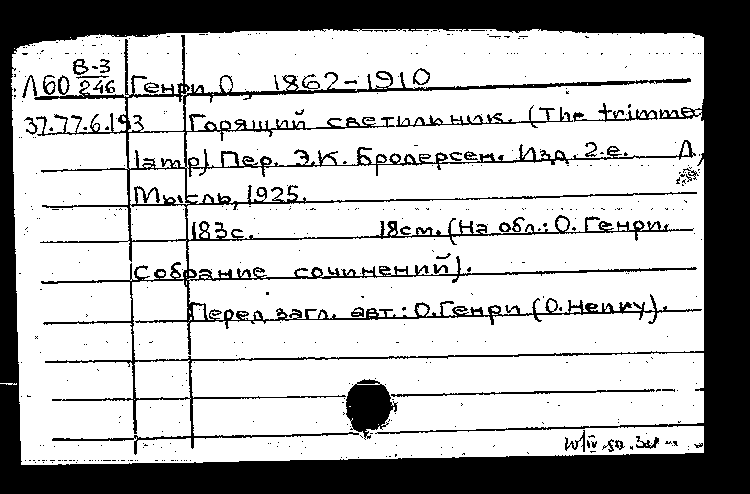 Л60 В-3/246 Генри, О., 1862-1910
37.77.6.193 Горящий светильник. (The trimmed
lamp). Пер. Э.К. Бродерсен. Изд. 2-е. Л.,
Мысль, 1925.
183с. 18см. (На обл.: О. Генри.
Собрание сочинений).
Перед загл. авт.: О.Генри (O.Henry).